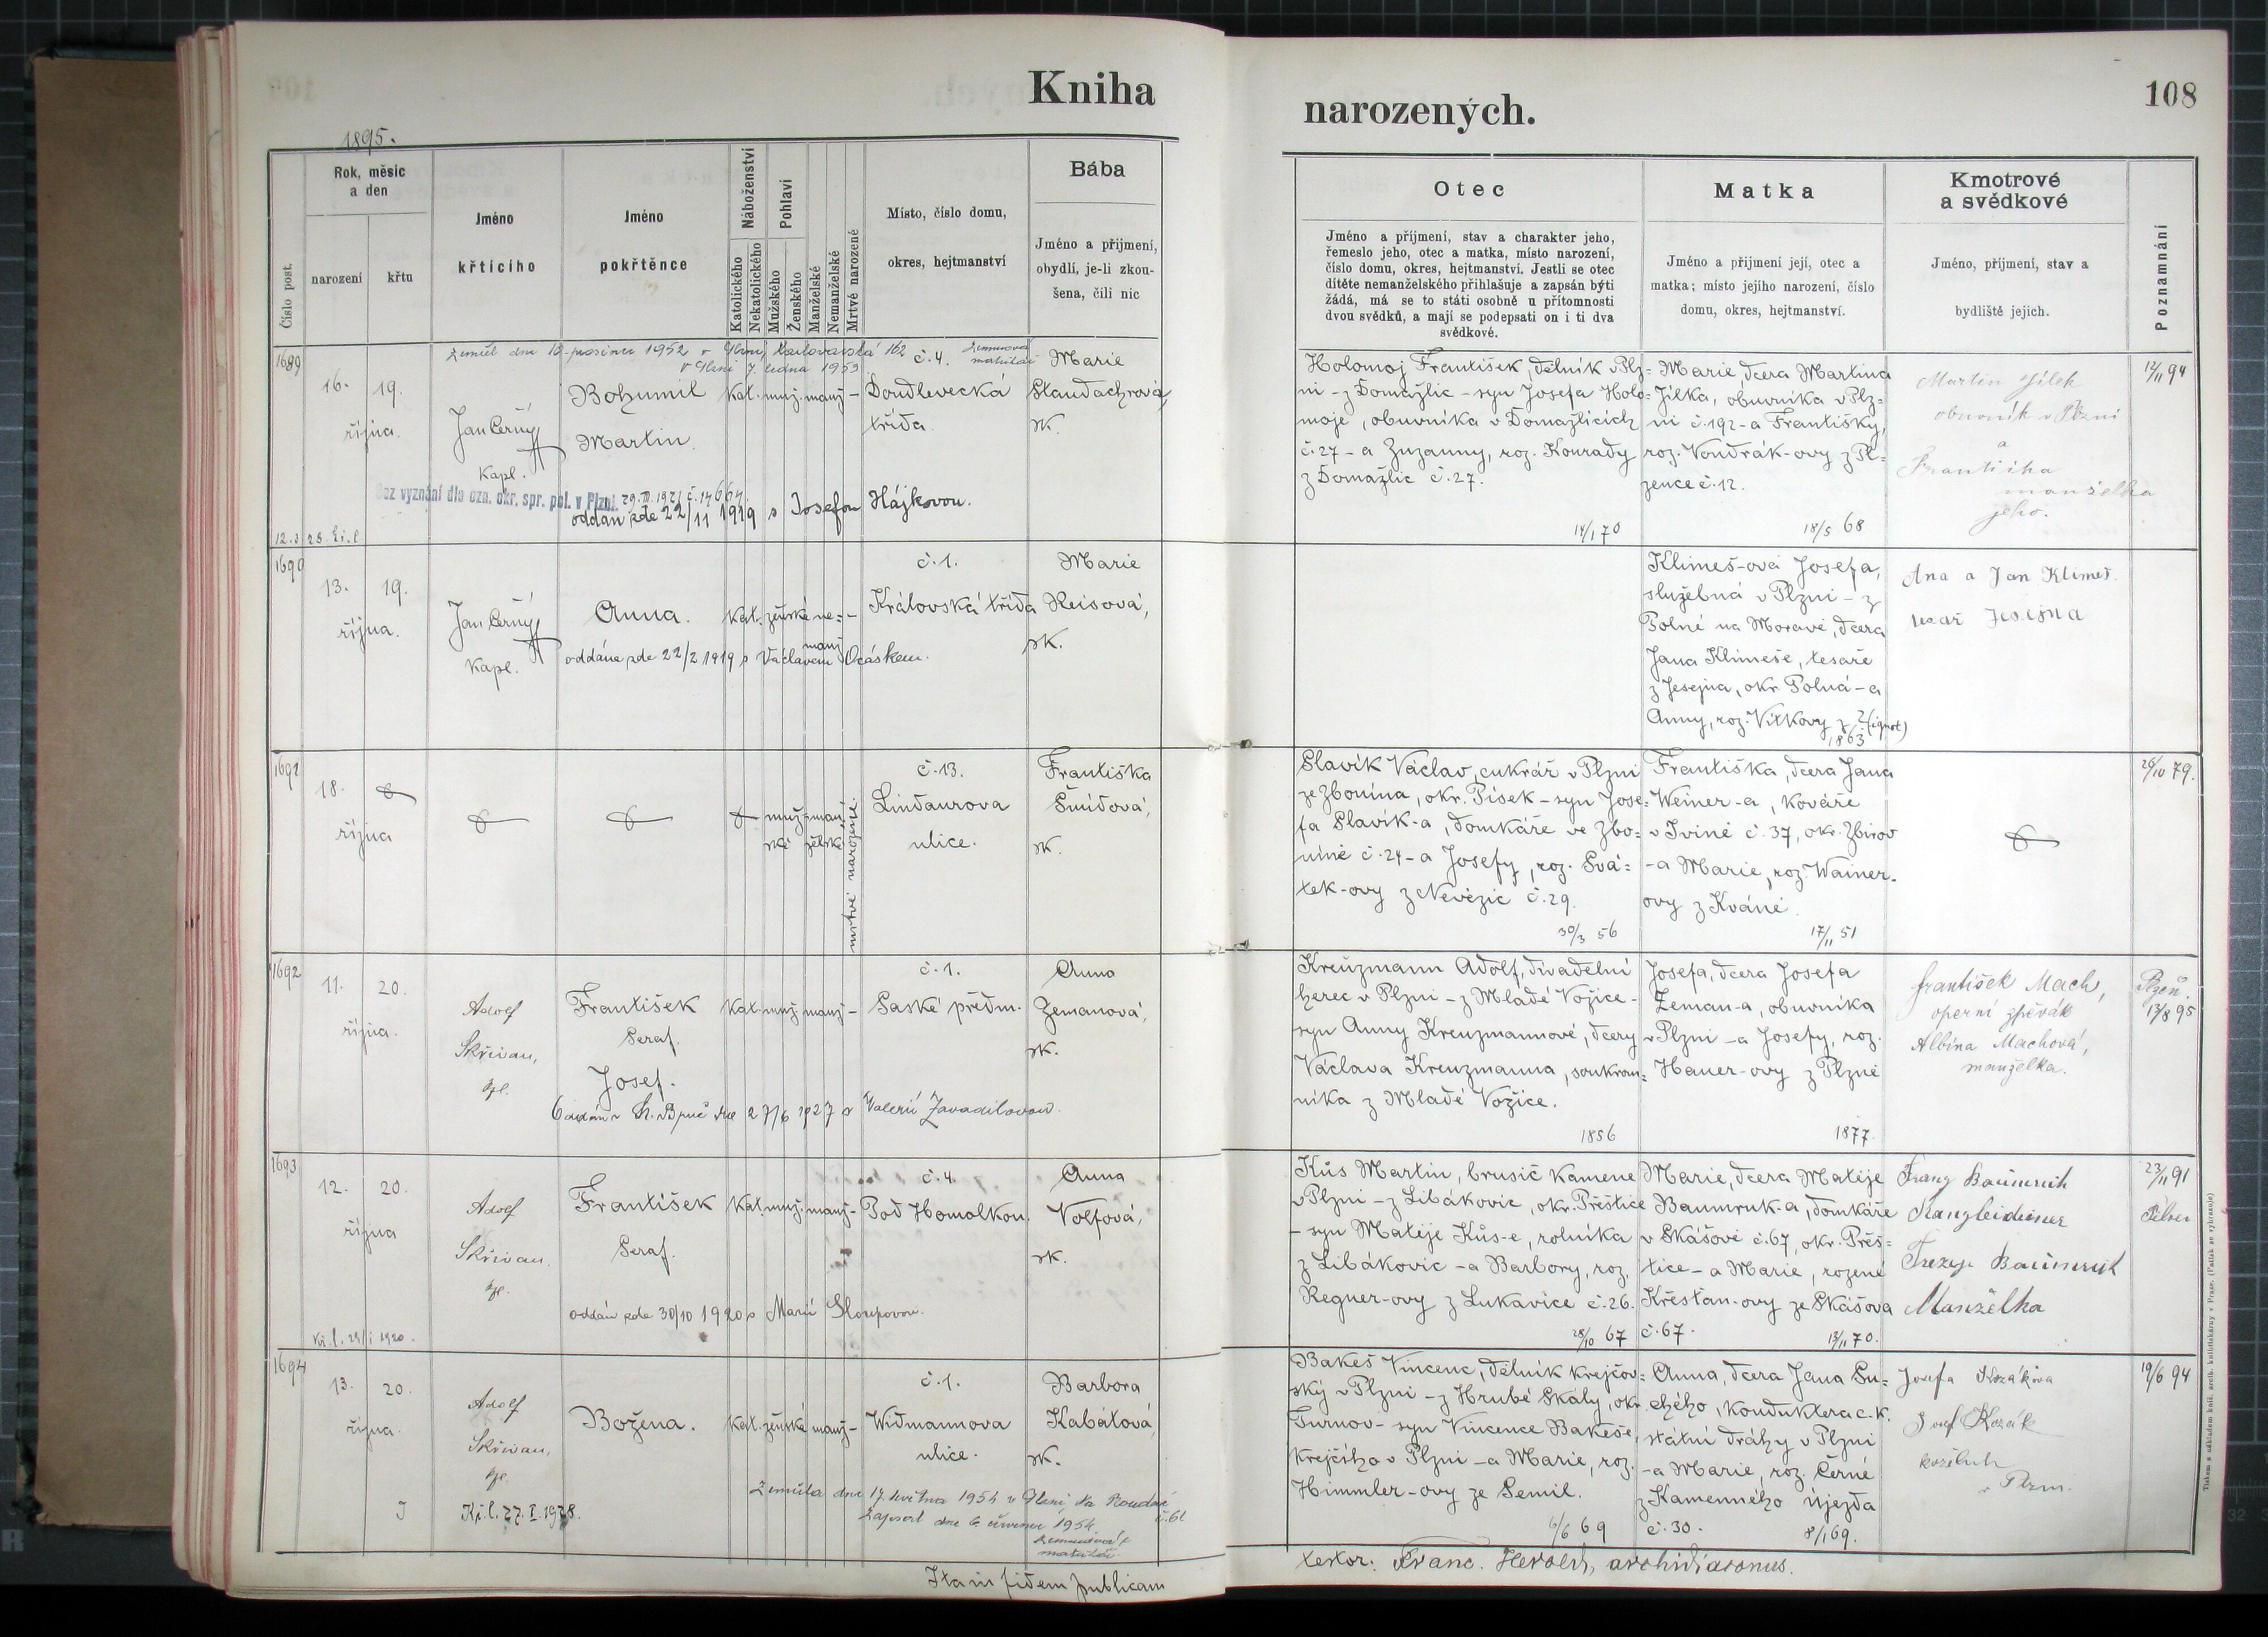 Kniha
narozených.
108
1895.
Číslo post.
Rok, měsíc
a den
narození
křtu
Jméno
křtícího
Jméno
pokřtěnce
Náboženství
Katolického
Nekatolického
Pohlaví
Mužského
Ženského
Manželské
Nemanželské
Mrtvé narozené
Místo, číslo domu,
okres, hejtmanství
Bába
Jméno a přijmení,
obydlí, je-li zkou-
šena, čili nic
Otec
Jméno a příjmení, stav a charakter jeho,
řemeslo jeho, otec a matka, místo narození,
číslo domu, okres, hejtmanství. Jestli se otec
dítěte nemanželského přihlašuje a zapsán býti
žádá, má se to státi osobně u přítomnosti
dvou svědků, a mají se podepsati on i ti dva
svědkové.
Matka
Jméno a přijmení její, otec a
matka; místo jejího narození, číslo
domu, okres, hejtmanství.
Kmotrové
a svědkové
Jméno, příjmení, stav a
bydliště jejich.
Poznamnání
1689
16. 19.
října.
Jan Černý
Kapl.
Bohumil
Martin.
Kat. muž. manž. -
č. 4.
Doudlevecká
třída.
Marie
Staudachrová,
zk.
v Plzni 7. ledna 1953
Bez vyznání dle ozn. okr. spr. pol. v Plzni
oddán zde 22/11 1919 s Josefou Hájkovou.
Holomoj František, dělník v Plz=
ni - z Domažlic - syn Josefa Holo=
moje, obuvníka v Domažlicích
č. 27 - a Zuzanny, roz. Konrady
z Domažlic č. 27.
14/1 70
Marie, dcera Martina
Jílka, obuvníka v Plz=
ni č. 192 - a Františky,
roz. Vondrák-ovy z Pl=
zence č. 12.
18/5 68
Martin Jílek
obuvník v Plzni
a
Františka
manželka
jeho.
12/11 94
1690
13. 19.
října.
Jan Černý
Kapl.
Anna.
Kat. ženské ne= -
manž
č. 1.
Královská třída
Marie
Reisová,
zk.
oddána zde 22/2 1919 s Václavem Ocáskem.
Klimeš-ová Josefa,
služebná v Plzni - z
Polné na Moravě, dcera
Jana Klimeše, tesaře
z Jesejna, okr. Polná - a
Anny, roz. Vítkovy z ? (ignot)
1863
Ana a Jan Klimeš.
tesař Jesejna
1691
18.
října
muž= manž=
ské želské
mrtvě narozené.
č. 13.
Lindaurova
ulice.
Františka
Šmídová,
zk.
Slavík Václav, cukrář v Plzni
ze Zbonína, okr. Písek - syn Jose=
fa Slavík-a, domkáře ve Zbo=
níně č. 24 - a Josefy, roz. Svá=
tek-ovy z Nevězic č. 29.
30/3 56
Františka, dcera Jana
Weiner-a, kováře
v Tvině č. 37, okr. Zbirov
- a Marie, roz. Wainer-
ovy z Kváně.
17/11 51
26/10 79.
1692
11. 20.
října.
Adolf
Skřivan,
kpl.
František
Seraf.
Josef.
Kat. muž. manž. -
č. 1.
Saské předm.
Anna
Zemanová,
zk.
27/6 1927 s Valerií Zavadilovou.
Kreuzmann Adolf, divadelní
herec v Plzni - z Mladé Vožice -
syn Anny Kreuzmannové, dcery
Václava Kreuzmanna, soukrom=
níka z Mladé Vožice.
1856
Josefa, dcera Josefa
Zeman-a, obuvníka
v Plzni - a Josefy, roz.
Hauer-ovy z Plzně
1877.
František Mach,
operní zpěvák
Albína Machová,
manželka.
Plzeň.
13/8 95
1693
12. 20.
října
Adolf
Skřivan,
kpl.
František
Seraf.
Kat. muž. manž. -
č. 4.
Pod Homolkou.
Anna
Volfová,
zk.
oddán zde 30/10 1920 s Marií Sloupovou.
Kůs Martin, brusič kamene
v Plzni - z Libákovic, okr. Přeštice
- syn Matěje Kůs-e, rolníka
z Libákovic - a Barbory, roz.
Regner-ovy z Lukavice č. 26.
28/10 67
Marie, dcera Matěje
Baumruk-a, domkáře
v Skášově č. 67, okr. Přeš=
tice - a Marie, rozené
Křesťan-ovy ze Skášova
č. 67.
13/11 70.
Franz Baumruk
Kanzleidiener
Baumruk
Manželka
23/11 91
Pilsen
1694
13. 20.
října.
Adolf
Skřivan,
kpl.
Božena.
Kat. ženské manž. -
č. 1.
Widmannova
ulice.
Barbora
Kabátová,
zk.
Zemřela dne 17. května 1954 v Plzni, Na Roudné
č. 61
Zapsal dne 6. července 1954.
Kř. l. 27. I. 1928.
Bakeš Vincenc, dělník krejčov=
ský v Plzni - z Hrubé Skály, okr.
Turnov - syn Vincence Bakeše,
krejčího v Plzni - a Marie, roz.
Himmler-ovy ze Semil.
6/6 69
Anna, dcera Jana Su=
chého, konduktera c. k.
státní dráhy v Plzni
- a Marie, roz. Černé
z Kamenného Újezda
č. 30.
8/1 69.
Josefa Kozáková
Josef Kozák
v Plzni.
19/6 94
Ita in fidem publicam
testor: Franc. Herold, archidiaconus.